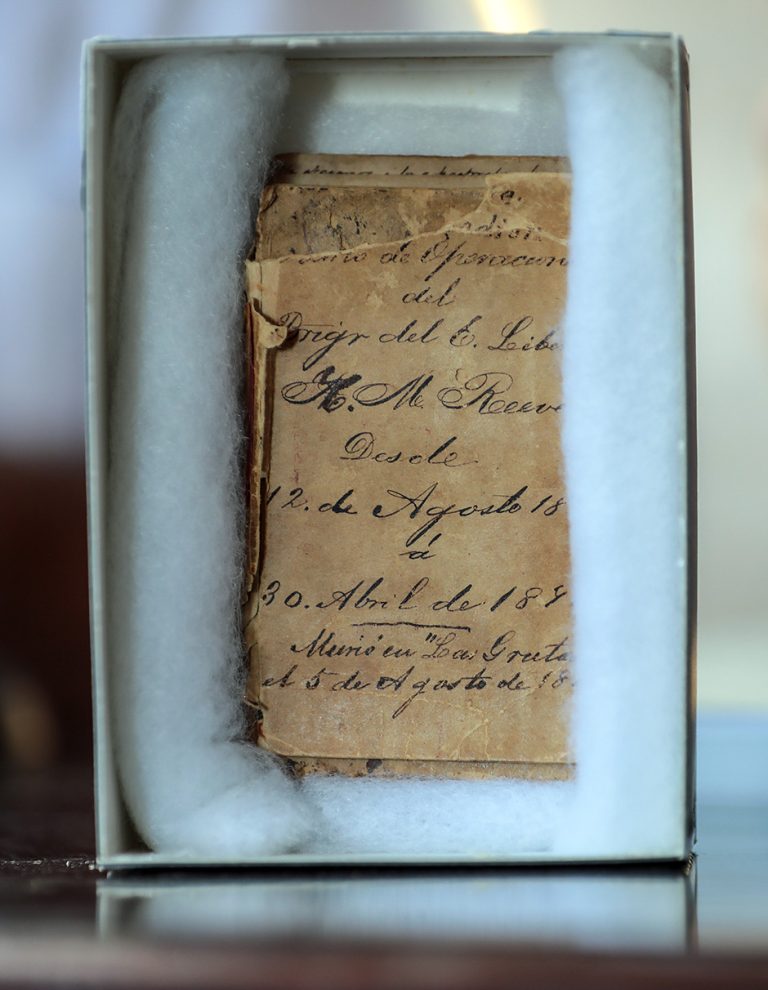 de Operacion
del
Brigr del E. Libe
H. M. Reeve
Desde
12. de Agosto 18
á
30. Abril de 187
Murió en "La Gruta
el 5 de Agosto de 18